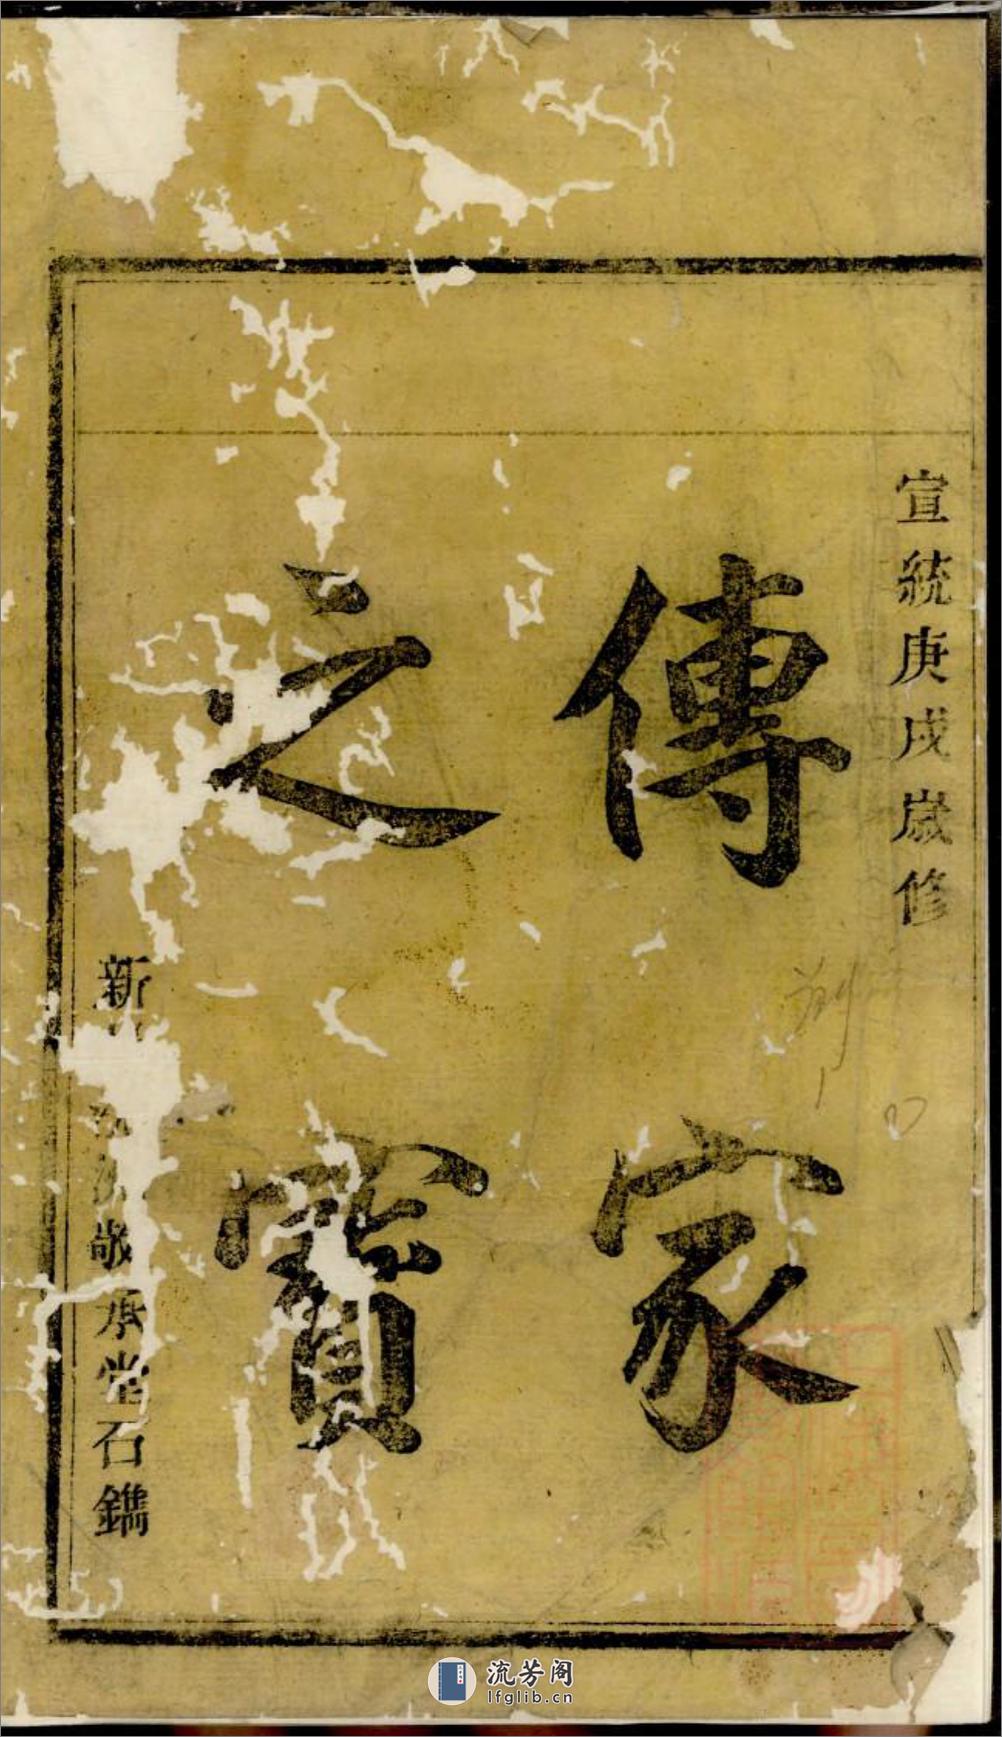 宣統庚戌歲修
傳家
之寶
新
敬承堂石鐫
流芳阁
lfglib.cn